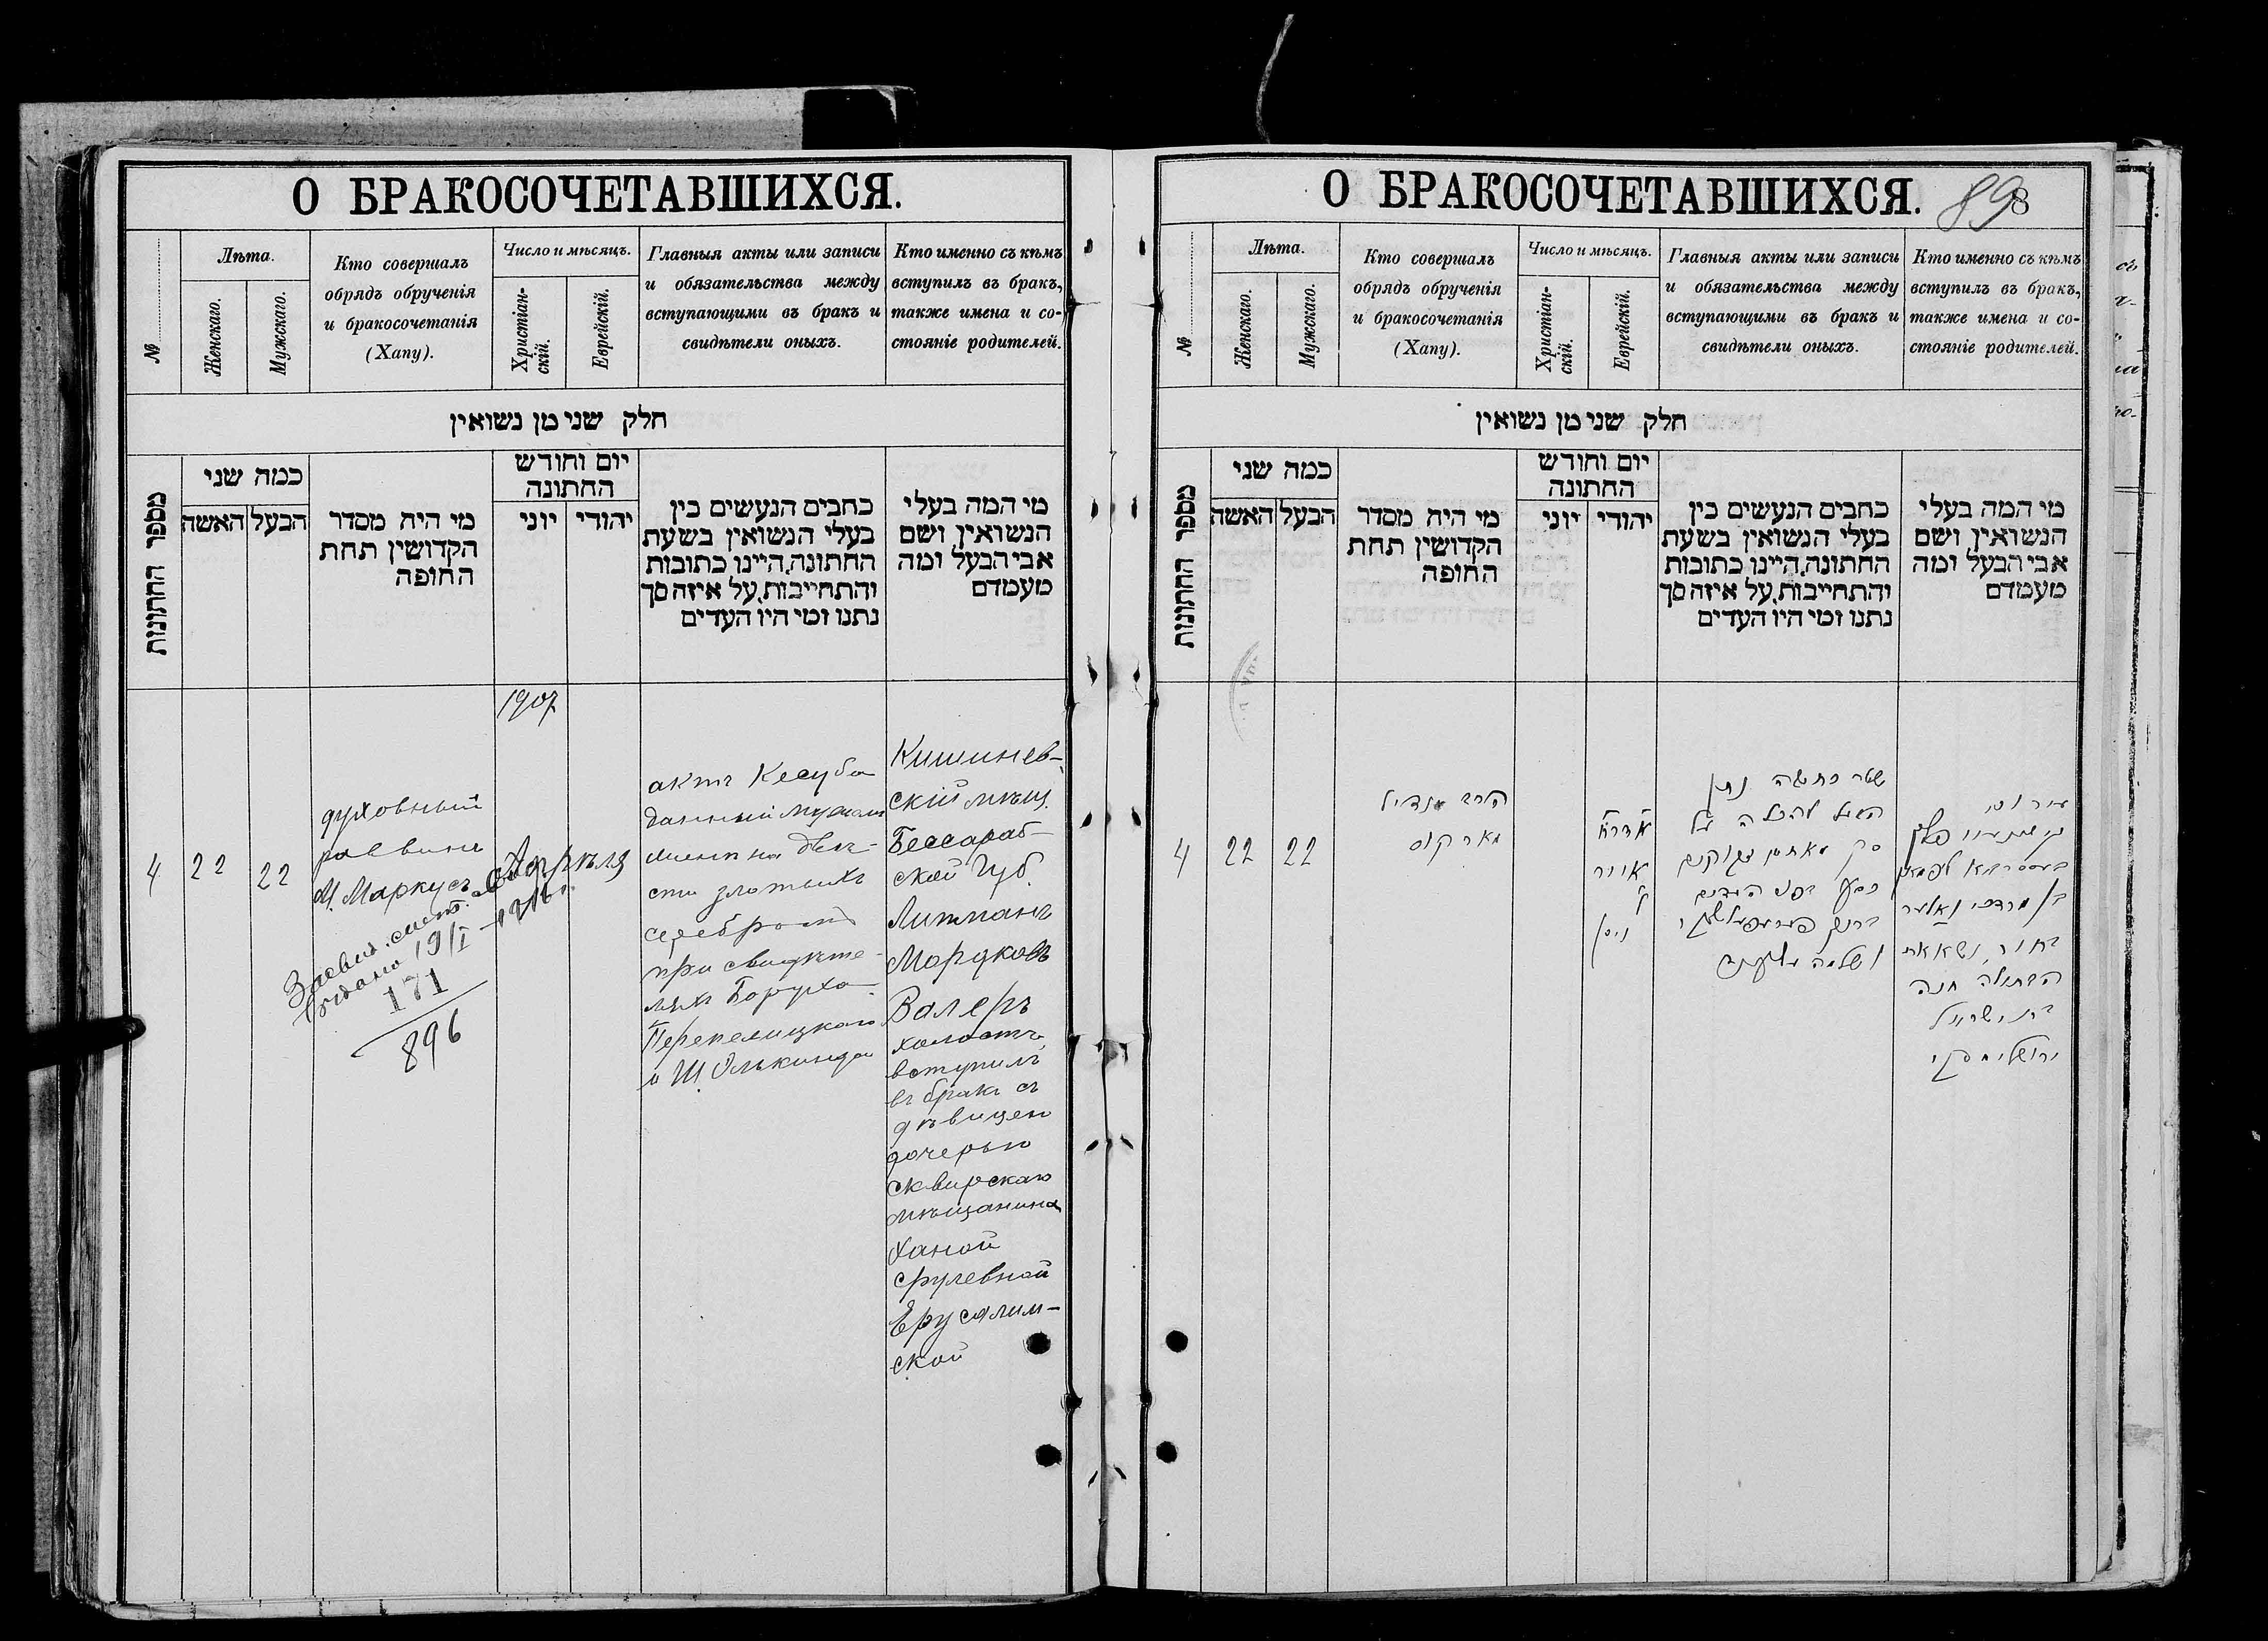 О БРАКОСОЧЕТАВШИХСЯ.
№
Лѣта.
Женскаго.
Мужскаго.
Кто совершалъ
обрядъ обрученія
и бракосочетанія
(Хапу).
Число и мѣсяцъ.
Христіан-
скій.
Еврейскій.
Главныя акты или записи
и обязательства между
вступающими въ бракъ и
свидѣтели оныхъ.
Кто именно съ кѣмъ
вступилъ въ бракъ,
также имена и со-
стояніе родителей.
חלק שני מן נשואין
מספר החתונות
כמה שני
האשה
הבעל
מי היה מסדר
הקדושין תחת
החופה
יום וחודש
החתונה
יוני
יהודי
כתבים הנעשים בין
בעלי הנשואין בשעת
החתונה, היינו כתובות
והתחייבות, על איזה סך
נתנו ומי היו העדים
מי המה בעלי
הנשואין ושם
אבי הבעל ומה
מעמדם
4
22
22
духовный
раввинъ
М. Маркусъ
19/I
171
896
1907
Апрѣля
актъ Кесуба
данный мужемъ
женѣ на двѣ-
сти злотыхъ
серебромъ
при свидѣте-
ляхъ Боруха
Перепелицкаго
и Ш. Олькинда
Кишинев-
скій мѣщ.
Бессараб-
ской Губ.
Литманъ
Мордковъ
Валеръ
холостъ,
вступилъ
въ бракъ съ
дѣвицею
дочерью
сквирскаго
мѣщанина
Ханой
Срулевной
Ерусалим-
ской
О БРАКОСОЧЕТАВШИХСЯ.
89
8
№
Лѣта.
Женскаго.
Мужскаго.
Кто совершалъ
обрядъ обрученія
и бракосочетанія
(Хапу).
Число и мѣсяцъ.
Христіан-
скій.
Еврейскій.
Главныя акты или записи
и обязательства между
вступающими въ бракъ и
свидѣтели оныхъ.
Кто именно съ кѣмъ
вступилъ въ бракъ,
также имена и со-
стояніе родителей.
חלק שני מן נשואין
מספר החתונות
כמה שני
האשה
הבעל
מי היה מסדר
הקדושין תחת
החופה
יום וחודש
החתונה
יוני
יהודי
כתבים הנעשים בין
בעלי הנשואין בשעת
החתונה, היינו כתובות
והתחייבות, על איזה סך
נתנו ומי היו העדים
מי המה בעלי
הנשואין ושם
אבי הבעל ומה
מעמדם
4
22
22
מארקוס
ניסן
שטר כתובה נתן
הבעל להכלה על
סך מאתים זקוקים
כסף בפני העדים
ברוך
ושלמה
עירוני
בן מרדכי וואלער
בחור נשא את
הבתולה חנה
בת ישראל
ירושלימסקי